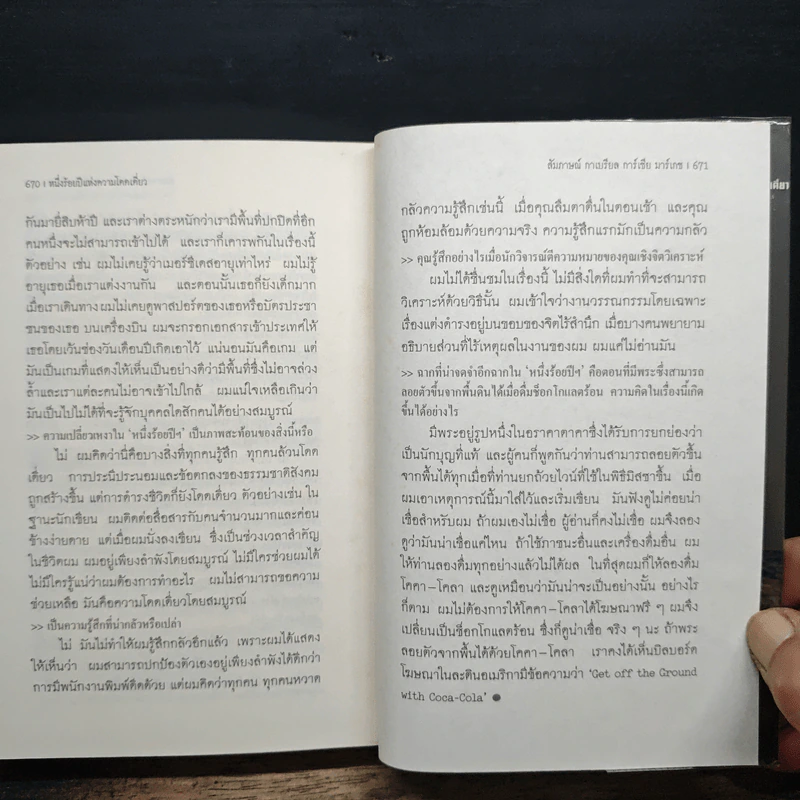 670 | หนึ่งร้อยปีแห่งความโดดเดี่ยว
กันมายี่สิบห้าปี และเราต่างตระหนักว่าเรามีพื้นที่ปกปิดที่อีก
คนหนึ่งจะไม่สามารถเข้าไปได้ และเราก็เคารพกันในเรื่องนี้
ตัวอย่าง เช่น ผมไม่เคยรู้ว่าเมอร์ซิเดสอายุเท่าไหร่ ผมไม่รู้
อายุเธอเมื่อเราแต่งงานกัน และตอนนั้นเธอก็ยังเด็กมาก
เมื่อเราเดินทาง ผมไม่เคยดูพาสปอร์ตของเธอหรือบัตรประชา
ชนของเธอ บนเครื่องบิน ผมจะกรอกเอกสารเข้าประเทศให้
เธอโดยเว้นช่องวันเดือนปีเกิดเอาไว้ แน่นอนมันคือเกม แต่
มันเป็นเกมที่แสดงให้เห็นเป็นอย่างดีว่ามีพื้นที่ซึ่งไม่อาจล่วง
ล้ำและเราแต่ละคนไม่อาจเข้าไปใกล้ ผมแน่ใจเหลือเกินว่า
มันเป็นไปไม่ได้ที่จะรู้จักบุคคลใดสักคนได้อย่างสมบูรณ์
>> ความเปลี่ยวเหงาใน 'หนึ่งร้อยปีฯ' เป็นภาพสะท้อนของสิ่งนี้หรือ
ไม่ ผมคิดว่านี่คือบางสิ่งที่ทุกคนรู้สึก ทุกคนล้วนโดด
เดี่ยว การประนีประนอมและข้อตกลงของธรรมชาติสังคม
ถูกสร้างขึ้น แต่การดำรงชีวิตก็ยังโดดเดี่ยว ตัวอย่างเช่น ใน
ฐานะนักเขียน ผมติดต่อสื่อสารกับคนจำนวนมากและค่อน
ข้างง่ายดาย แต่เมื่อผมนั่งลงเขียน ซึ่งเป็นช่วงเวลาสำคัญ
ในชีวิตผม ผมอยู่เพียงลำพังโดยสมบูรณ์ ไม่มีใครช่วยผมได้
ไม่มีใครรู้แน่ว่าผมต้องการทำอะไร ผมไม่สามารถขอความ
ช่วยเหลือ มันคือความโดดเดี่ยวโดยสมบูรณ์
>> เป็นความรู้สึกที่น่ากลัวหรือเปล่า
ไม่ มันไม่ทำให้ผมรู้สึกกลัวอีกแล้ว เพราะผมได้แสดง
ให้เห็นว่า ผมสามารถปกป้องตัวเองอยู่เพียงลำพังได้ดีกว่า
การมีพนักงานพิมพ์ดีดด้วย แต่ผมคิดว่าทุกคน ทุกคนหวาด
สัมภาษณ์ กาเบรียล การ์เซีย มาร์เกซ | 671
กลัวความรู้สึกเช่นนี้ เมื่อคุณลืมตาตื่นในตอนเช้า และคุณ
ถูกห้อมล้อมด้วยความจริง ความรู้สึกแรกมักเป็นความกลัว
>> คุณรู้สึกอย่างไรเมื่อนักวิจารณ์ตีความหมายของคุณเชิงจิตวิเคราะห์
ผมไม่ได้ชื่นชมในเรื่องนี้ ไม่มีสิ่งใดที่ผมทำที่จะสามารถ
วิเคราะห์ด้วยวิธีนั้น ผมเข้าใจว่างานวรรณกรรมโดยเฉพาะ
เรื่องแต่งดำรงอยู่บนขอบของจิตไร้สำนึก เมื่อบางคนพยายาม
อธิบายส่วนที่ไร้เหตุผลในงานของผม ผมแค่ไม่อ่านมัน
>> ฉากที่น่าจดจำอีกฉากใน 'หนึ่งร้อยปีฯ' คือตอนที่มีพระซึ่งสามารถ
ลอยตัวขึ้นจากพื้นดินได้เมื่อดื่มช็อกโกแลตร้อน ความคิดในเรื่องนี้เกิด
ขึ้นได้อย่างไร
มีพระอยู่รูปหนึ่งในอราคาตาคาซึ่งได้รับการยกย่องว่า
เป็นนักบุญที่แท้ และผู้คนก็พูดกันว่าท่านสามารถลอยตัวขึ้น
จากพื้นได้ทุกเมื่อที่ท่านยกถ้วยไวน์ที่ใช้ในพิธีมิสซาขึ้น เมื่อ
ผมเอาเหตุการณ์นี้มาใส่ไว้และเริ่มเขียน มันฟังดูไม่ค่อยน่า
เชื่อสำหรับผม ถ้าผมเองไม่เชื่อ ผู้อ่านก็คงไม่เชื่อ ผมจึงลอง
ดูว่ามันน่าเชื่อแค่ไหน ถ้าใช้ภาชนะอื่นและเครื่องดื่มอื่น ผม
ให้ท่านลองดื่มทุกอย่างแล้วไม่ได้ผล ในที่สุดผมก็ให้ลองดื่ม
โคคา-โคลา และดูเหมือนว่ามันน่าจะเป็นอย่างนั้น อย่างไร
ก็ตาม ผมไม่ต้องการให้โคคา-โคลาได้โฆษณาฟรี ๆ ผมจึง
เปลี่ยนเป็นช็อกโกแลตร้อน ซึ่งก็ดูน่าเชื่อ จริง ๆ นะ ถ้าพระ
ลอยตัวจากพื้นได้ด้วยโคคา-โคลา เราคงได้เห็นบิลบอร์ด
โฆษณาในละตินอเมริกามีข้อความว่า 'Get off the Ground
with Coca-Cola' ●